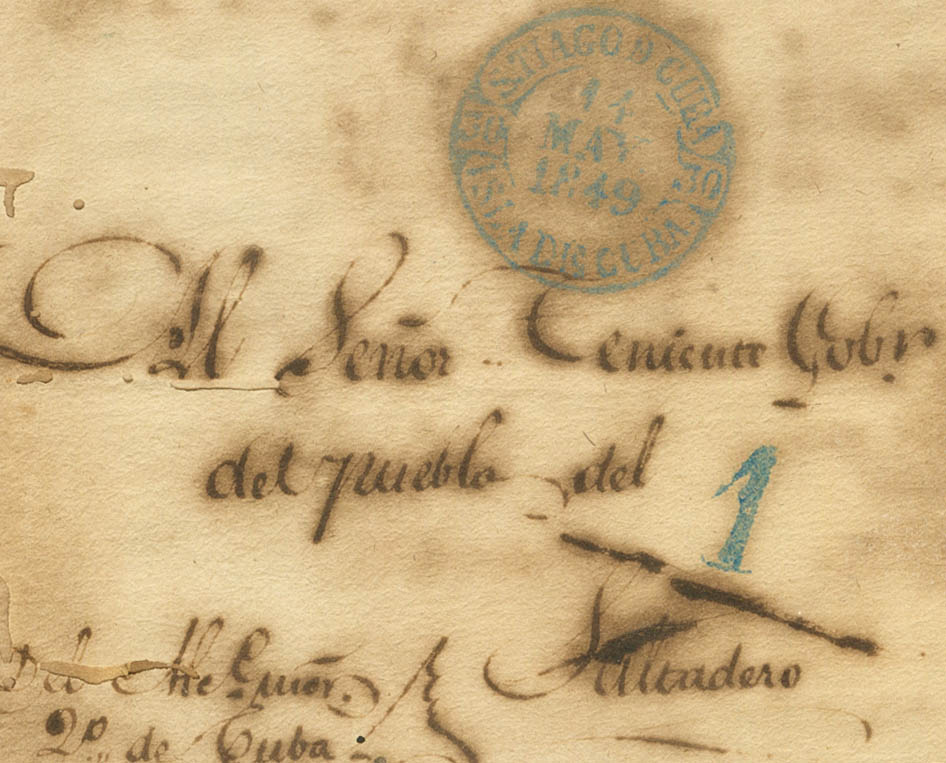 S.TIAGO D CUBA
14
MAY
1849
ISLA DE CUBA
Al Señor Teniente Gobr.
del pueblo del
1
Saltadero
Del Alc
2º de Cuba